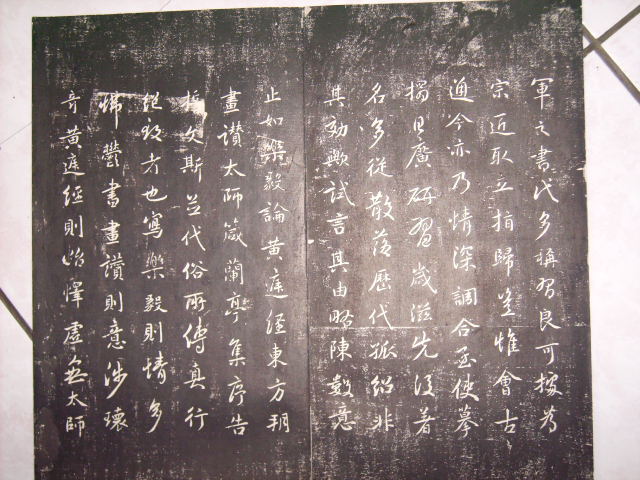 軍之書代多稱習良可據為
宗匠取立指歸豈惟會古
通今亦乃情深調合至使摹
搨日廣研習歲滋先後著
名多從散落歷代孤紹非
其効歟試言其由略陳數意
止如樂毅論黃庭經東方朔
畫讚太師箴蘭亭集序告
誓文斯並代俗所傳真行
絕致者也寫樂毅則情多
怫鬱書畫讚則意涉瓌
奇黃庭經則怡懌虛無太師